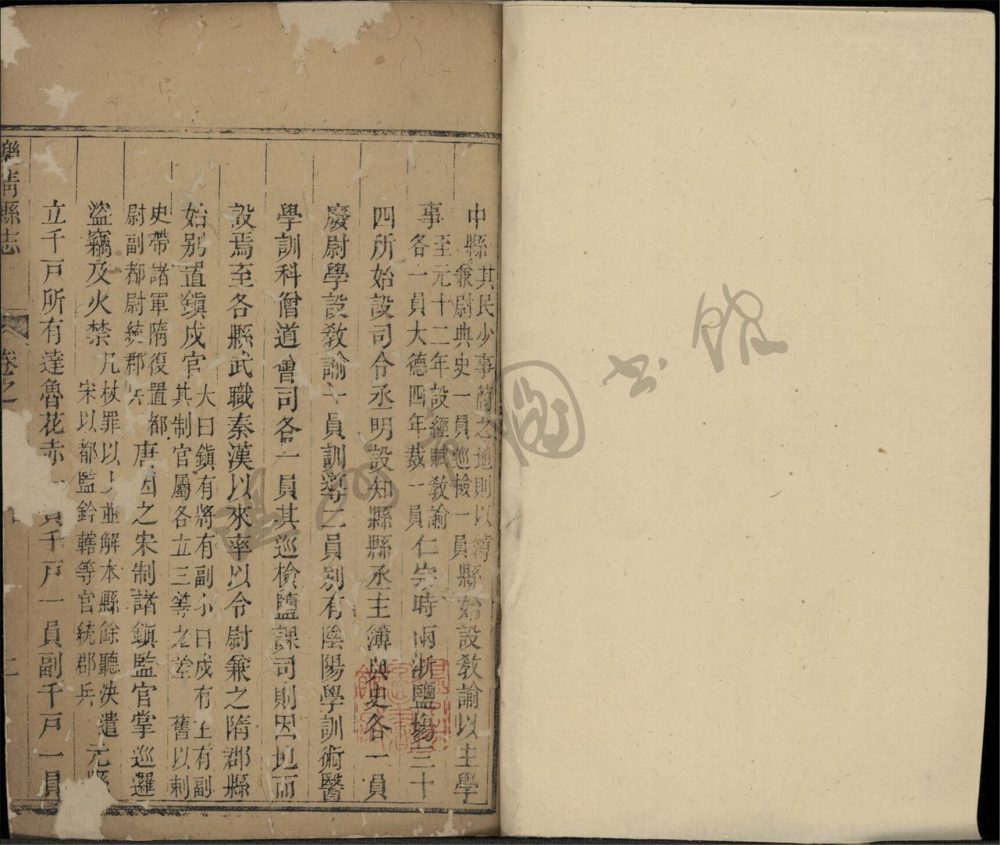 中縣其民少事簡之地則以簿
兼尉典史一員巡檢一員
縣始設教諭以主學
事至元十二年設經賦教諭
各一員大德四年裁一員
仁宗時兩浙鹽場三十
四所始設司令丞明設知縣縣丞主簿典史各一員
廢尉學設教諭一員訓導二員別有陰陽學訓術醫
學訓科僧道會司各一員其巡檢鹽課司則因地而
設焉至各縣武職秦漢以來率以令尉兼之隋郡縣
始別置鎮戍官大曰鎮有將有副小曰戍有主有副
其制官屬各立三等之差 舊以刺
史帶諸軍隋復置都
尉副都尉統郡兵
唐因之宋制諸鎮監官掌巡邏
盜竊及火禁凡杖罪以上並解本縣餘聽決遣
宋以都監鈐轄等官統郡兵
元縣
立千戶所有達魯花赤一員千戶一員副千戶一員
樂清縣志
卷之
二
温州市圖書館